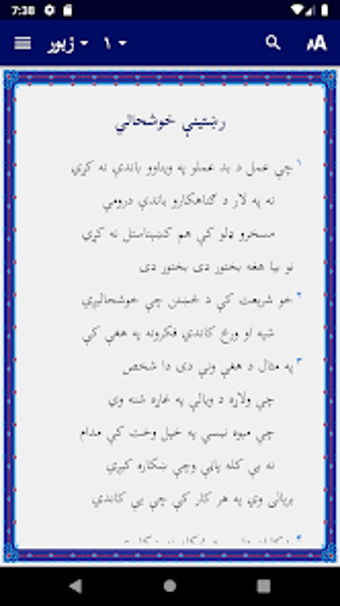 7:38
زبور ۱
AA
رښتینې خوشحالي
۱ چې عمل د بد عملو په ویناوو باندې نه کړي
نه په لار د ګناهکارو باندې درومي
مسخرو ډلو کې هم کښېناستل نه کړي
نو بیا هغه بختور دی بختور دی
۲ خو شریعت کې د څښتن چې خوشحالېږي
شپه او ورځ کاندي فکرونه په هغې کې
۳ په مثال د هغې ونې دی دا شخص
چې ولاړه د ویالې په غاړه شنه وي
چې مېوه نیسي په خپل وخت کې مدام
نه یې کله پاڼې وچې ښکاره کېږي
بریالی وي په هر کار کې چې یې کاندي
۴